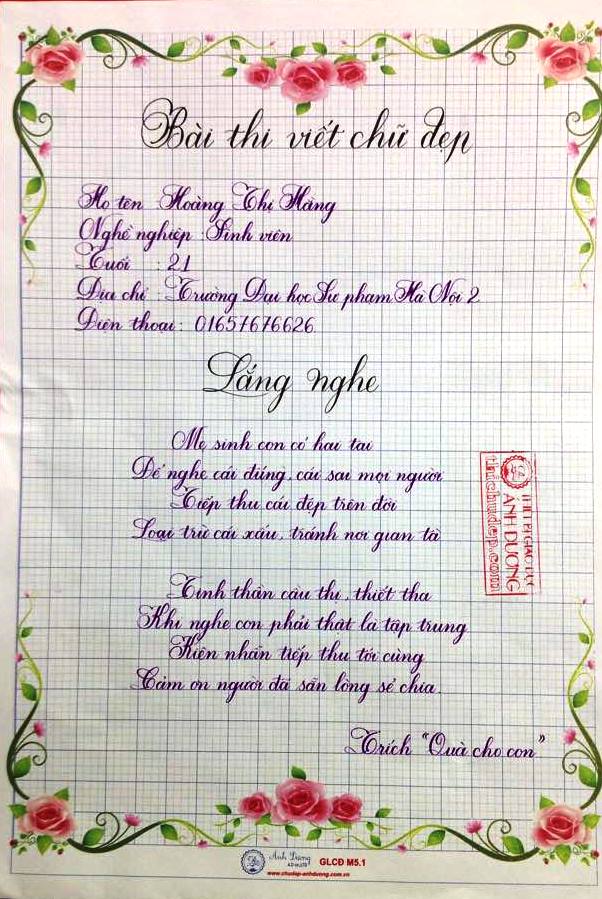 Bài thi viết chữ đẹp
Họ tên Hoàng Thị Hằng
Nghề nghiệp : Sinh viên
Tuổi : 21
Địa chỉ : Trường Đại học Sư phạm Hà Nội 2
Điện thoại : 01657676626
Lắng nghe
Mẹ sinh con có hai tai
Để nghe cái đúng, cái sai mọi người
Tiếp thu cái đẹp trên đời
Loại trừ cái xấu, tránh nơi gian tà
Tinh thần cầu thị, thiết tha
Khi nghe con phải thật là tập trung
Kiên nhẫn tiếp thu tới cùng
Cảm ơn người đã sẵn lòng sẻ chia.
Trích "Quà cho con"
ÁNH DƯƠNG
thichudep.com
Ánh Dương
GLCĐ M5.1
www.chudep-anhduong.com.vn